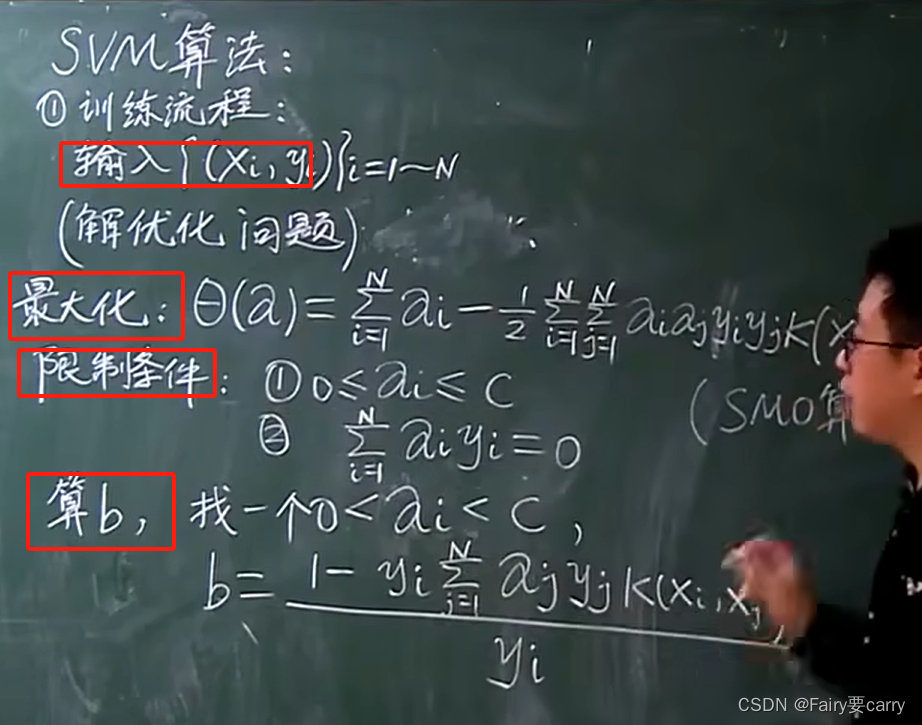 SVM算法:
① 训练流程:
输入{(Xi, yi)}i=1~N
(解优化问题)
最大化: θ(a)=∑_{i=1}^{N} ai - 1/2 ∑_{i=1}^{N} ∑_{j=1}^{N} aiajyiyjK(x
限制条件: ① 0≤ai≤C
(SMO算
② ∑_{i=1}^{N} aiyi=0
算b, 找一个0<ai<C,
b= (1 - yi ∑_{j=1}^{N} ajyjK(xi, xj)) / yi
CSDN @Fairy要carry